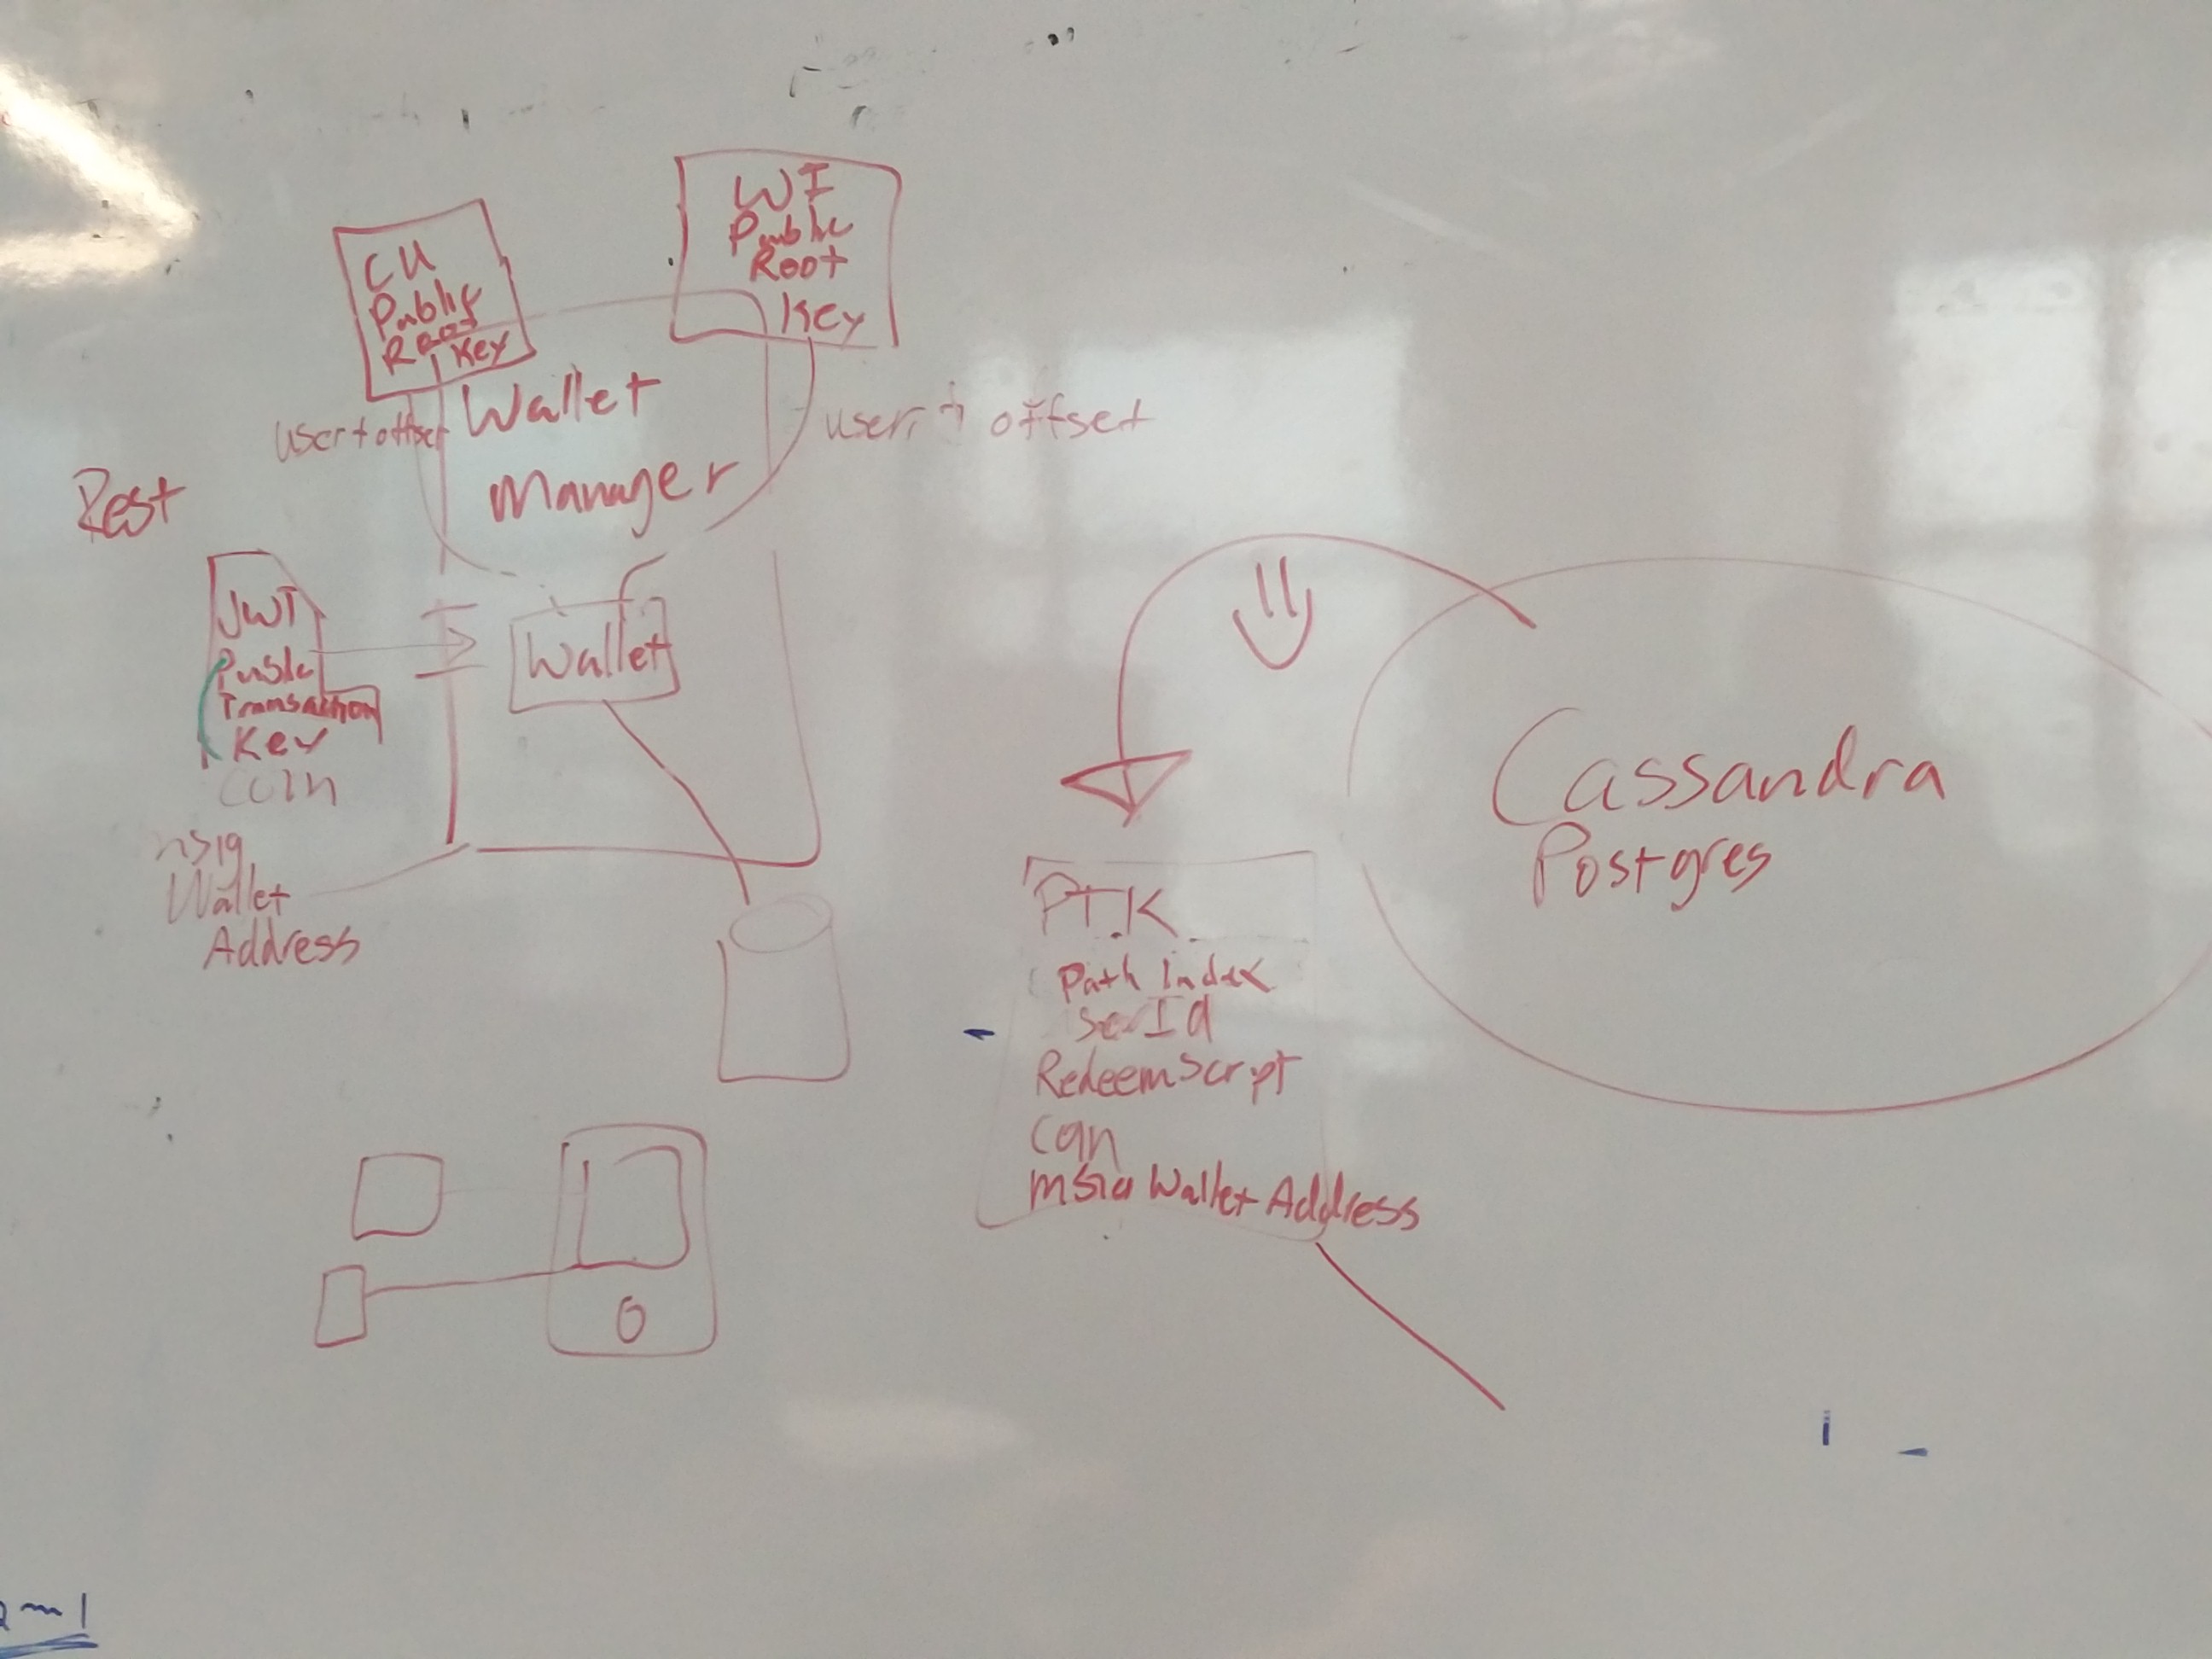 CU
Public
Root
Key
WI
Public
Root
Key
Wallet
Manager
user + offset
user + offset
Rest
JWT
Public
Transaction
Key
Coin
Wallet
Wallet
Address
Cassandra
Postgres
PTK
Path Index
serId
Redeemscript
msig Wallet Address